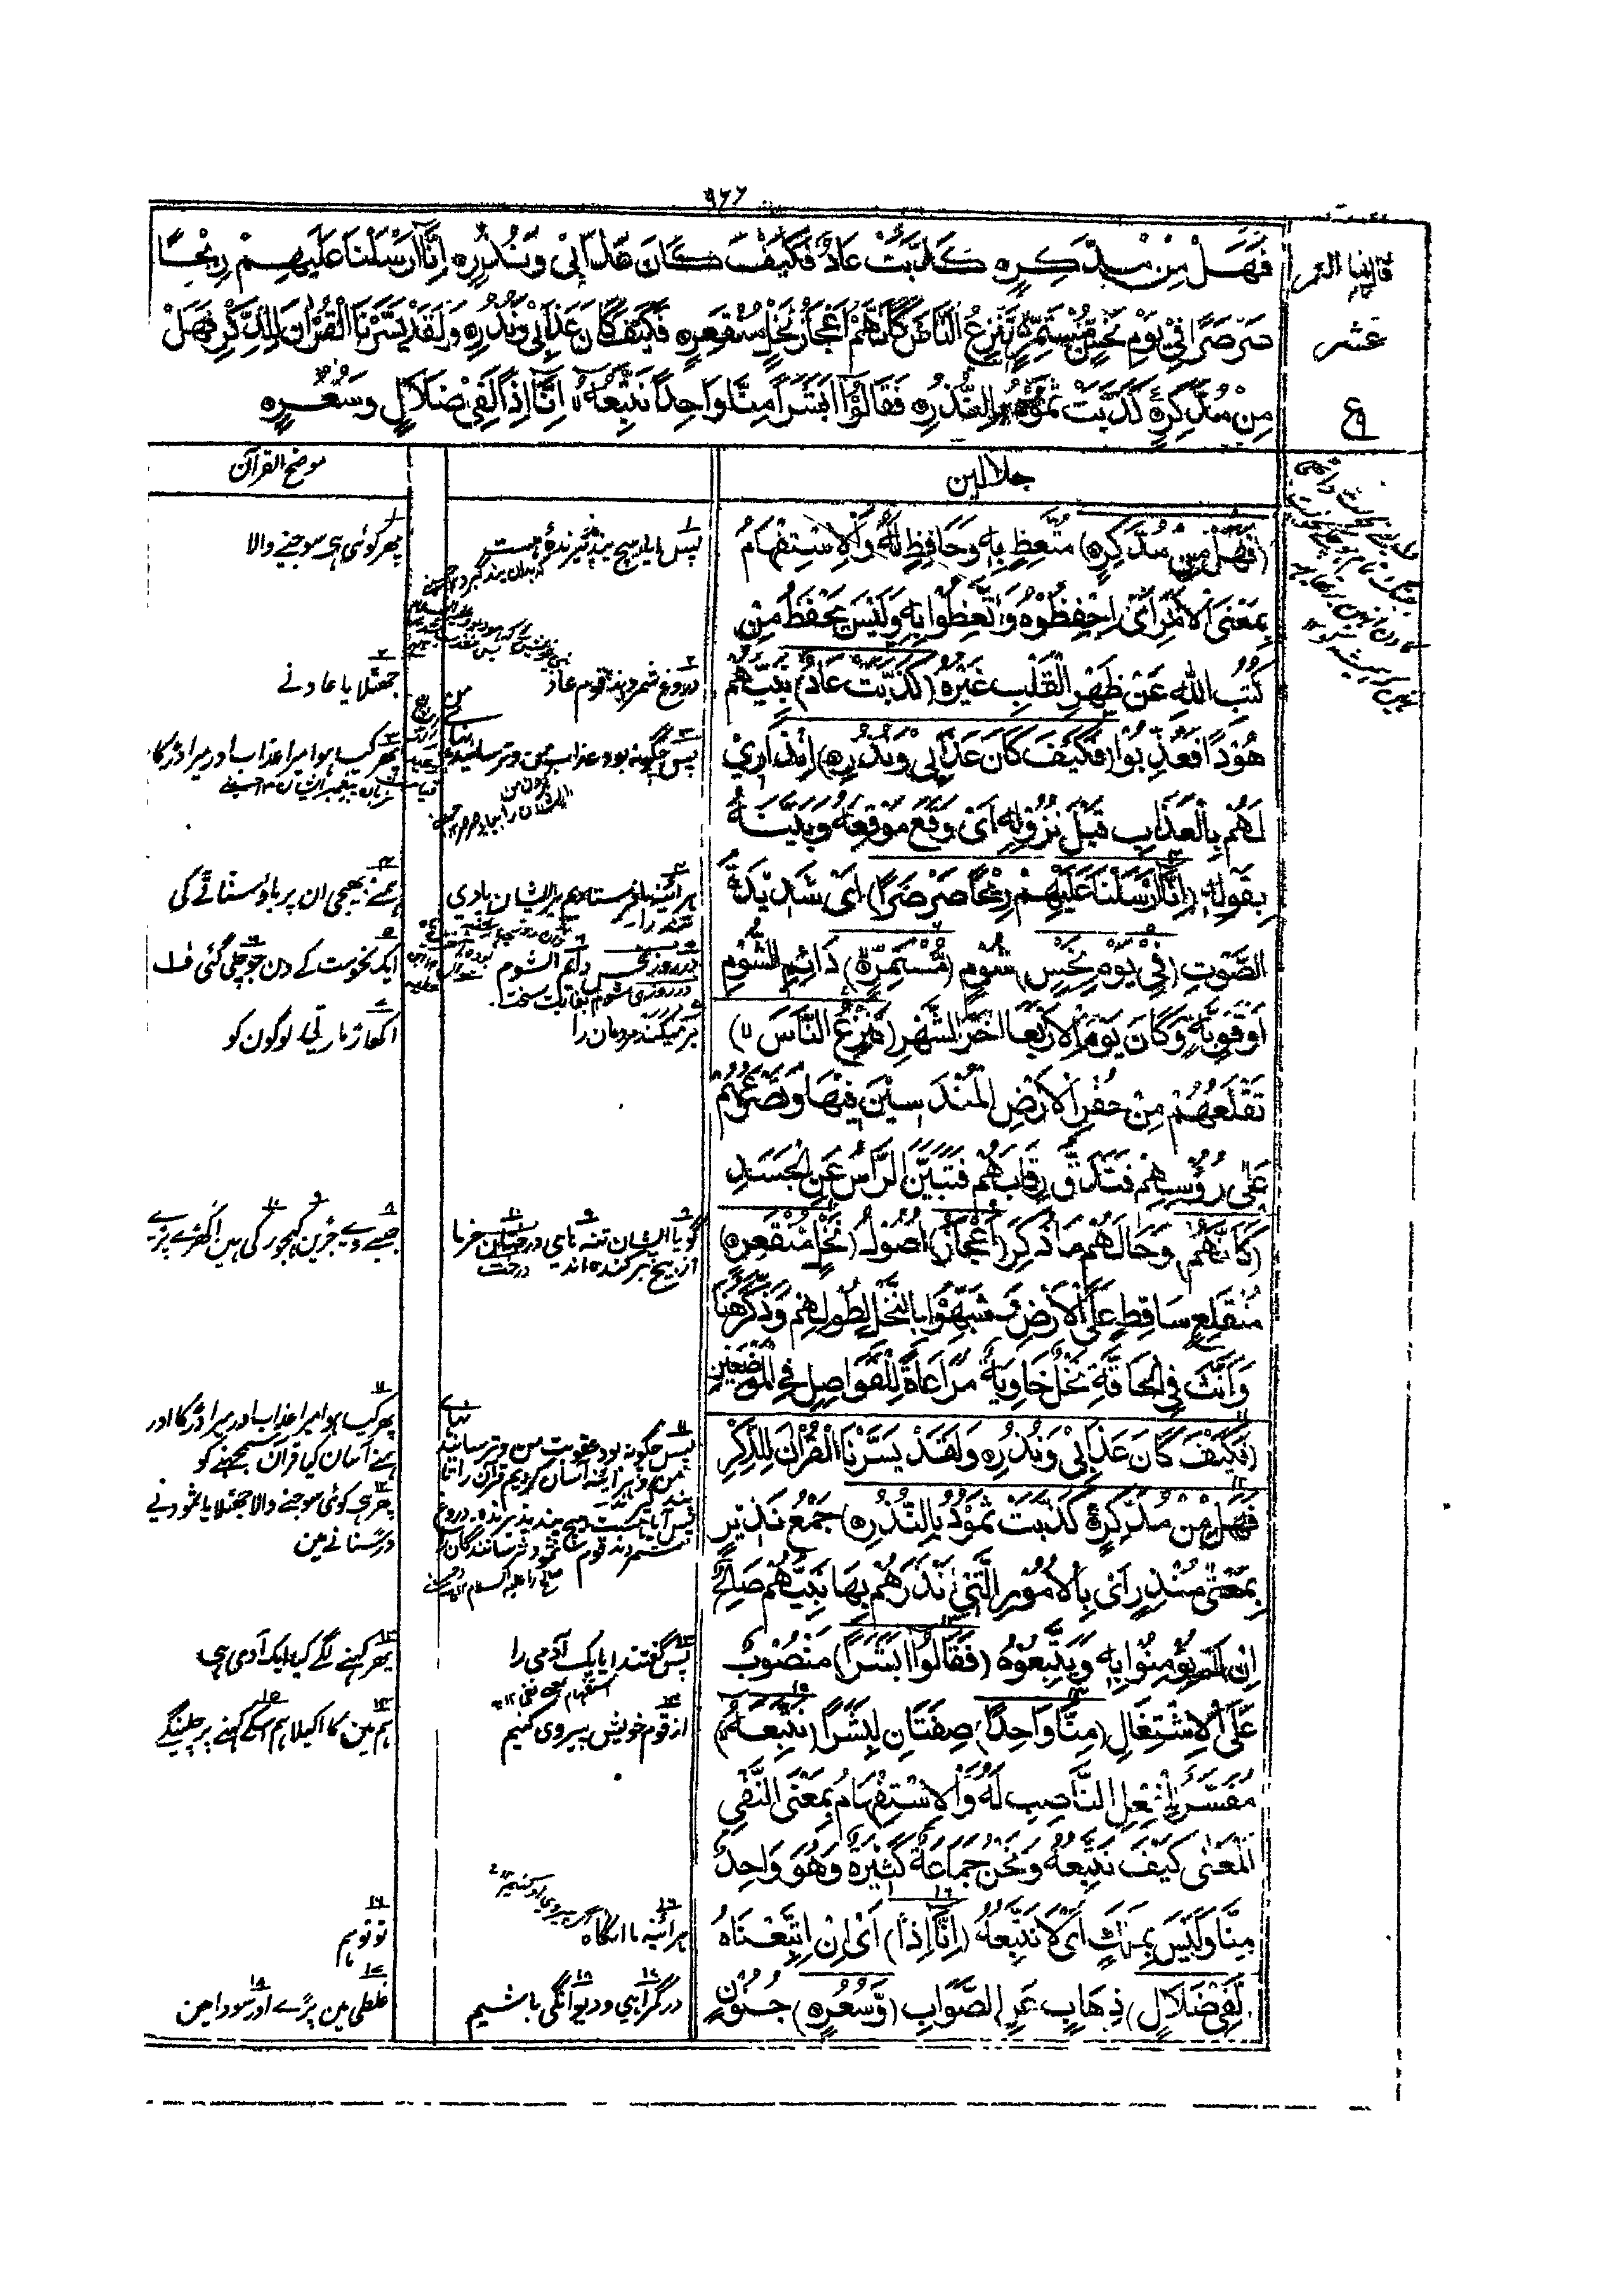 ۹۶۶
فَهَلْ مِنْ مُدَّكِرٍ ه كَذَّبَتْ عَادٌ فَكَيْفَ كَانَ عَذَابِيْ وَنُذُرِ ه اِنَّا اَرْسَلْنَا عَلَيْهِمْ رِيْحًا
صَرْصَرًا فِيْ يَوْمِ نَحْسٍ مُّسْتَمِرٍّ ه تَنْزِعُ النَّاسَ كَاَنَّهُمْ اَعْجَازُ نَخْلٍ مُّنْقَعِرٍ ه فَكَيْفَ كَانَ عَذَابِيْ وَنُذُرِ ه وَلَقَدْ يَسَّرْنَا الْقُرْاٰنَ لِلذِّكْرِ فَهَلْ
مِنْ مُدَّكِرٍ ه كَذَّبَتْ ثَمُوْدُ بِالنُّذُرِ ه فَقَالُوْا اَبَشَرًا مِنَّا وَاحِدًا نَتَّبِعُهُ اِنَّا اِذًا لَفِيْ ضَلَالٍ وَسُعُرٍ ه
عشر
ع
جلالین
(فَهَلْ مِنْ مُدَّكِرٍ ه) مُتَّعِظٍ بِهٖ وَحَافِظٍ لَهُ وَالْاِسْتِفْهَامُ
بِمَعْنَى الْاَمْرِ اَيْ اِحْفَظُوْهُ وَاتَّعِظُوْا بِهٖ وَلَيْسَ يُحْفَظُ مِنْ
كُتُبِ اللهِ عَنْ ظَهْرِ الْقَلْبِ غَيْرُهُ (كَذَّبَتْ عَادٌ) نَبِيَّهُمْ
هُوْدًا فَعُذِّبُوْا (فَكَيْفَ كَانَ عَذَابِيْ وَنُذُرِ ه) اِنْذَارِيْ
لَهُمْ بِالْعَذَابِ قَبْلَ نُزُوْلِهٖ اَيْ وَقَعَ مَوْقِعَهُ وَبَيَّنَهُ
بِقَوْلِهٖ (اِنَّا اَرْسَلْنَا عَلَيْهِمْ رِيْحًا صَرْصَرًا) اَيْ شَدِيْدَةَ
الصَّوْتِ (فِيْ يَوْمِ نَحْسٍ) شُوْمٍ (مُّسْتَمِرٍّ ه) دَائِمِ الشُّوْمِ
اَوْ قَوِيِّهٖ وَكَانَ يَوْمَ الْاَرْبِعَا اٰخِرَ الشَّهْرِ (تَنْزِعُ النَّاسَ)
تَقْلَعُهُمْ مِنْ حُفَرِ الْاَرْضِ الْمُنْدَسِّيْنَ فِيْهَا وَتَصْرَعُهُمْ
عَلٰى رُؤُسِهِمْ فَتَدُقُّ رِقَابَهُمْ فَتُبَيِّنُ الرَّاْسَ عَنِ الْجَسَدِ
(كَاَنَّهُمْ) وَحَالُهُمْ مَا ذُكِرَ (اَعْجَازُ) اُصُوْلُ (نَخْلٍ مُّنْقَعِرٍ ه)
مُنْقَلِعٍ سَاقِطٍ عَلَى الْاَرْضِ وَشُبِّهُوْا بِالنَّخْلِ لِطُوْلِهِمْ وَذُكِّرَ هُنَا
وَاُنِّثَ فِي الْحَاقَّةِ نَخْلٌ خَاوِيَةٌ مُرَاعَاةً لِلْفَوَاصِلِ فِي الْمَوْضِعَيْنِ
(فَكَيْفَ كَانَ عَذَابِيْ وَنُذُرِ ه وَلَقَدْ يَسَّرْنَا الْقُرْاٰنَ لِلذِّكْرِ
فَهَلْ مِنْ مُدَّكِرٍ ه كَذَّبَتْ ثَمُوْدُ بِالنُّذُرِ ه) جَمْعُ نَذِيْرٍ
بِمَعْنٰى مُنْذِرٍ اَيْ بِالْاُمُوْرِ الَّتِيْ نَذَرَهُمْ بِهَا نَبِيُّهُمْ صَالِحٌ
اِنْ لَمْ يُؤْمِنُوْا بِهٖ وَيَتَّبِعُوْهُ (فَقَالُوْا اَبَشَرًا) مَنْصُوْبٌ
عَلَى الْاِشْتِغَالِ (مِنَّا وَاحِدًا) صِفَتَانِ لِبَشَرًا (نَتَّبِعُهُ)
مُفَسِّرٌ لِلْفِعْلِ النَّاصِبِ لَهُ وَالْاِسْتِفْهَامُ بِمَعْنَى النَّفْيِ
اَلْمَعْنٰى كَيْفَ نَتَّبِعُهُ وَنَحْنُ جَمَاعَةٌ كَثِيْرَةٌ وَهُوَ وَاحِدٌ
مِنَّا وَلَيْسَ بِمَلِكٍ اَيْ لَا نَتَّبِعُهُ (اِنَّا اِذًا) اَيْ اِنْ اتَّبَعْنَاهُ
(لَفِيْ ضَلَالٍ) ذِهَابٍ عَنِ الصَّوَابِ (وَّسُعُرٍ ه) جُنُوْنٍ
پس ایا ہیچ پند پذیرندہ ہست
دروغ شمردند قوم عاد
پس چگونہ بود عذاب من و ترسانیدن
ہرائینہ ما فرستادیم بر ایشان بادی
تند را
در روز نحس دائم الشوم
در روزی شوم بغایت سخت
بر میکند مردمان را
گویا ایشان تنہ ہای درختان خرما
از بیخ برکندہ اند
پس چگونہ بود عقوبت من و ترسانیدن
من و ہرائنہ آسان کردیم قرآن را
پس آیا ہست ہیچ پند پذیرندہ دروغ
شمردند قوم ثمود ترسانندگان را
پس گفتند ایا یک آدمی را
از قوم خویش پیروی کنیم
ہرائینہ ما انگاہ
در گمراہی و دیوانگی باشیم
موضح القرآن
پھر کوئی ہی سوچنے والا
جھٹلایا عاد نے
پھر کیسا ہوا میرا عذاب اور میرا ڈر کا
ہمنے بھیجی ان پر باؤ سناٹے کی
ایک نحوست کے دن جو چلی گئی ف
اکھاڑ مارتی لوگون کو
جیسے وے جڑین کھجور کی ہین اکھڑے پڑے
پھر کیسا ہوا میرا عذاب اور میرا ڈر کا اور
ہمنے آسان کیا قرآن سمجھنے کو
پھر ہی کوئی سوچنے والا جھٹلایا ثمود نے
ڈر سنانے مین
پھر کہنے لگے کیا ایک آدمی ہی
ہم مین کا اکیلا ہم اسکے کہنے پر چلینگے
تو تو ہم
غلطی مین پڑے اور سودا مین